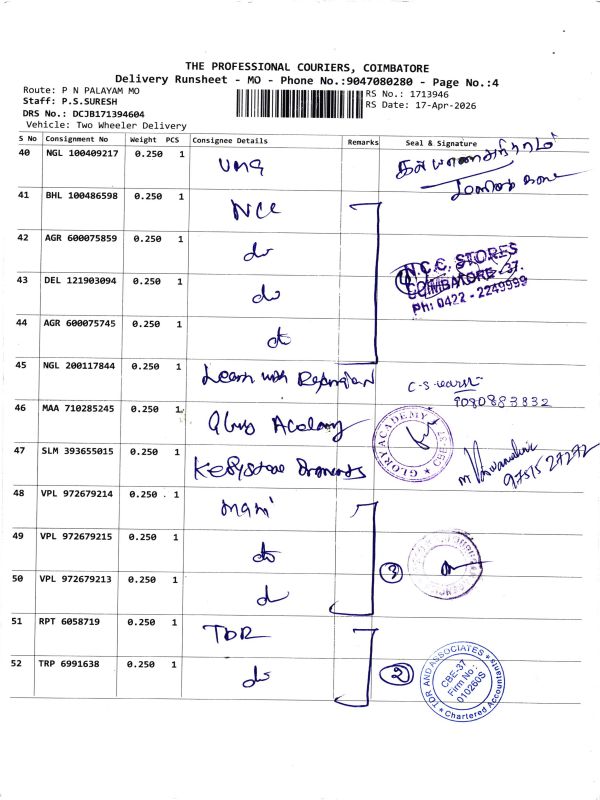 THE PROFESSIONAL COURIERS, COIMBATORE
Delivery Runsheet - MO - Phone No.:9047080280 - Page No.:4
Route: P N PALAYAM MO
RS No.: 1713946
Staff: P.S.SURESH
RS Date: 17-Apr-2026
DRS No.: DCJB171394604
Vehicle: Two Wheeler Delivery
S No Consignment No Weight PCS Consignee Details Remarks Seal & Signature
40 NGL 100409217 0.250 1
41 BHL 100486598 0.250 1 NCC
42 AGR 600075859 0.250 1 do
N.C.C. STORES
COIMBATORE - 37.
Ph: 0422 - 2249999
43 DEL 121903094 0.250 1 do
44 AGR 600075745 0.250 1 do
45 NGL 200117844 0.250 1 Learn with
9080883832
46 MAA 710285245 0.250 1 Academy
GLORY ACADEMY
CBE-37
47 SLM 393655015 0.250 1
97515 27272
48 VPL 972679214 0.250 1 Mani
49 VPL 972679215 0.250 1 do
3
50 VPL 972679213 0.250 1 do
51 RPT 6058719 0.250 1 TDR
52 TRP 6991638 0.250 1 do
2
TDR AND ASSOCIATES
CBE-37
Firm No :
010260S
Chartered Accountants